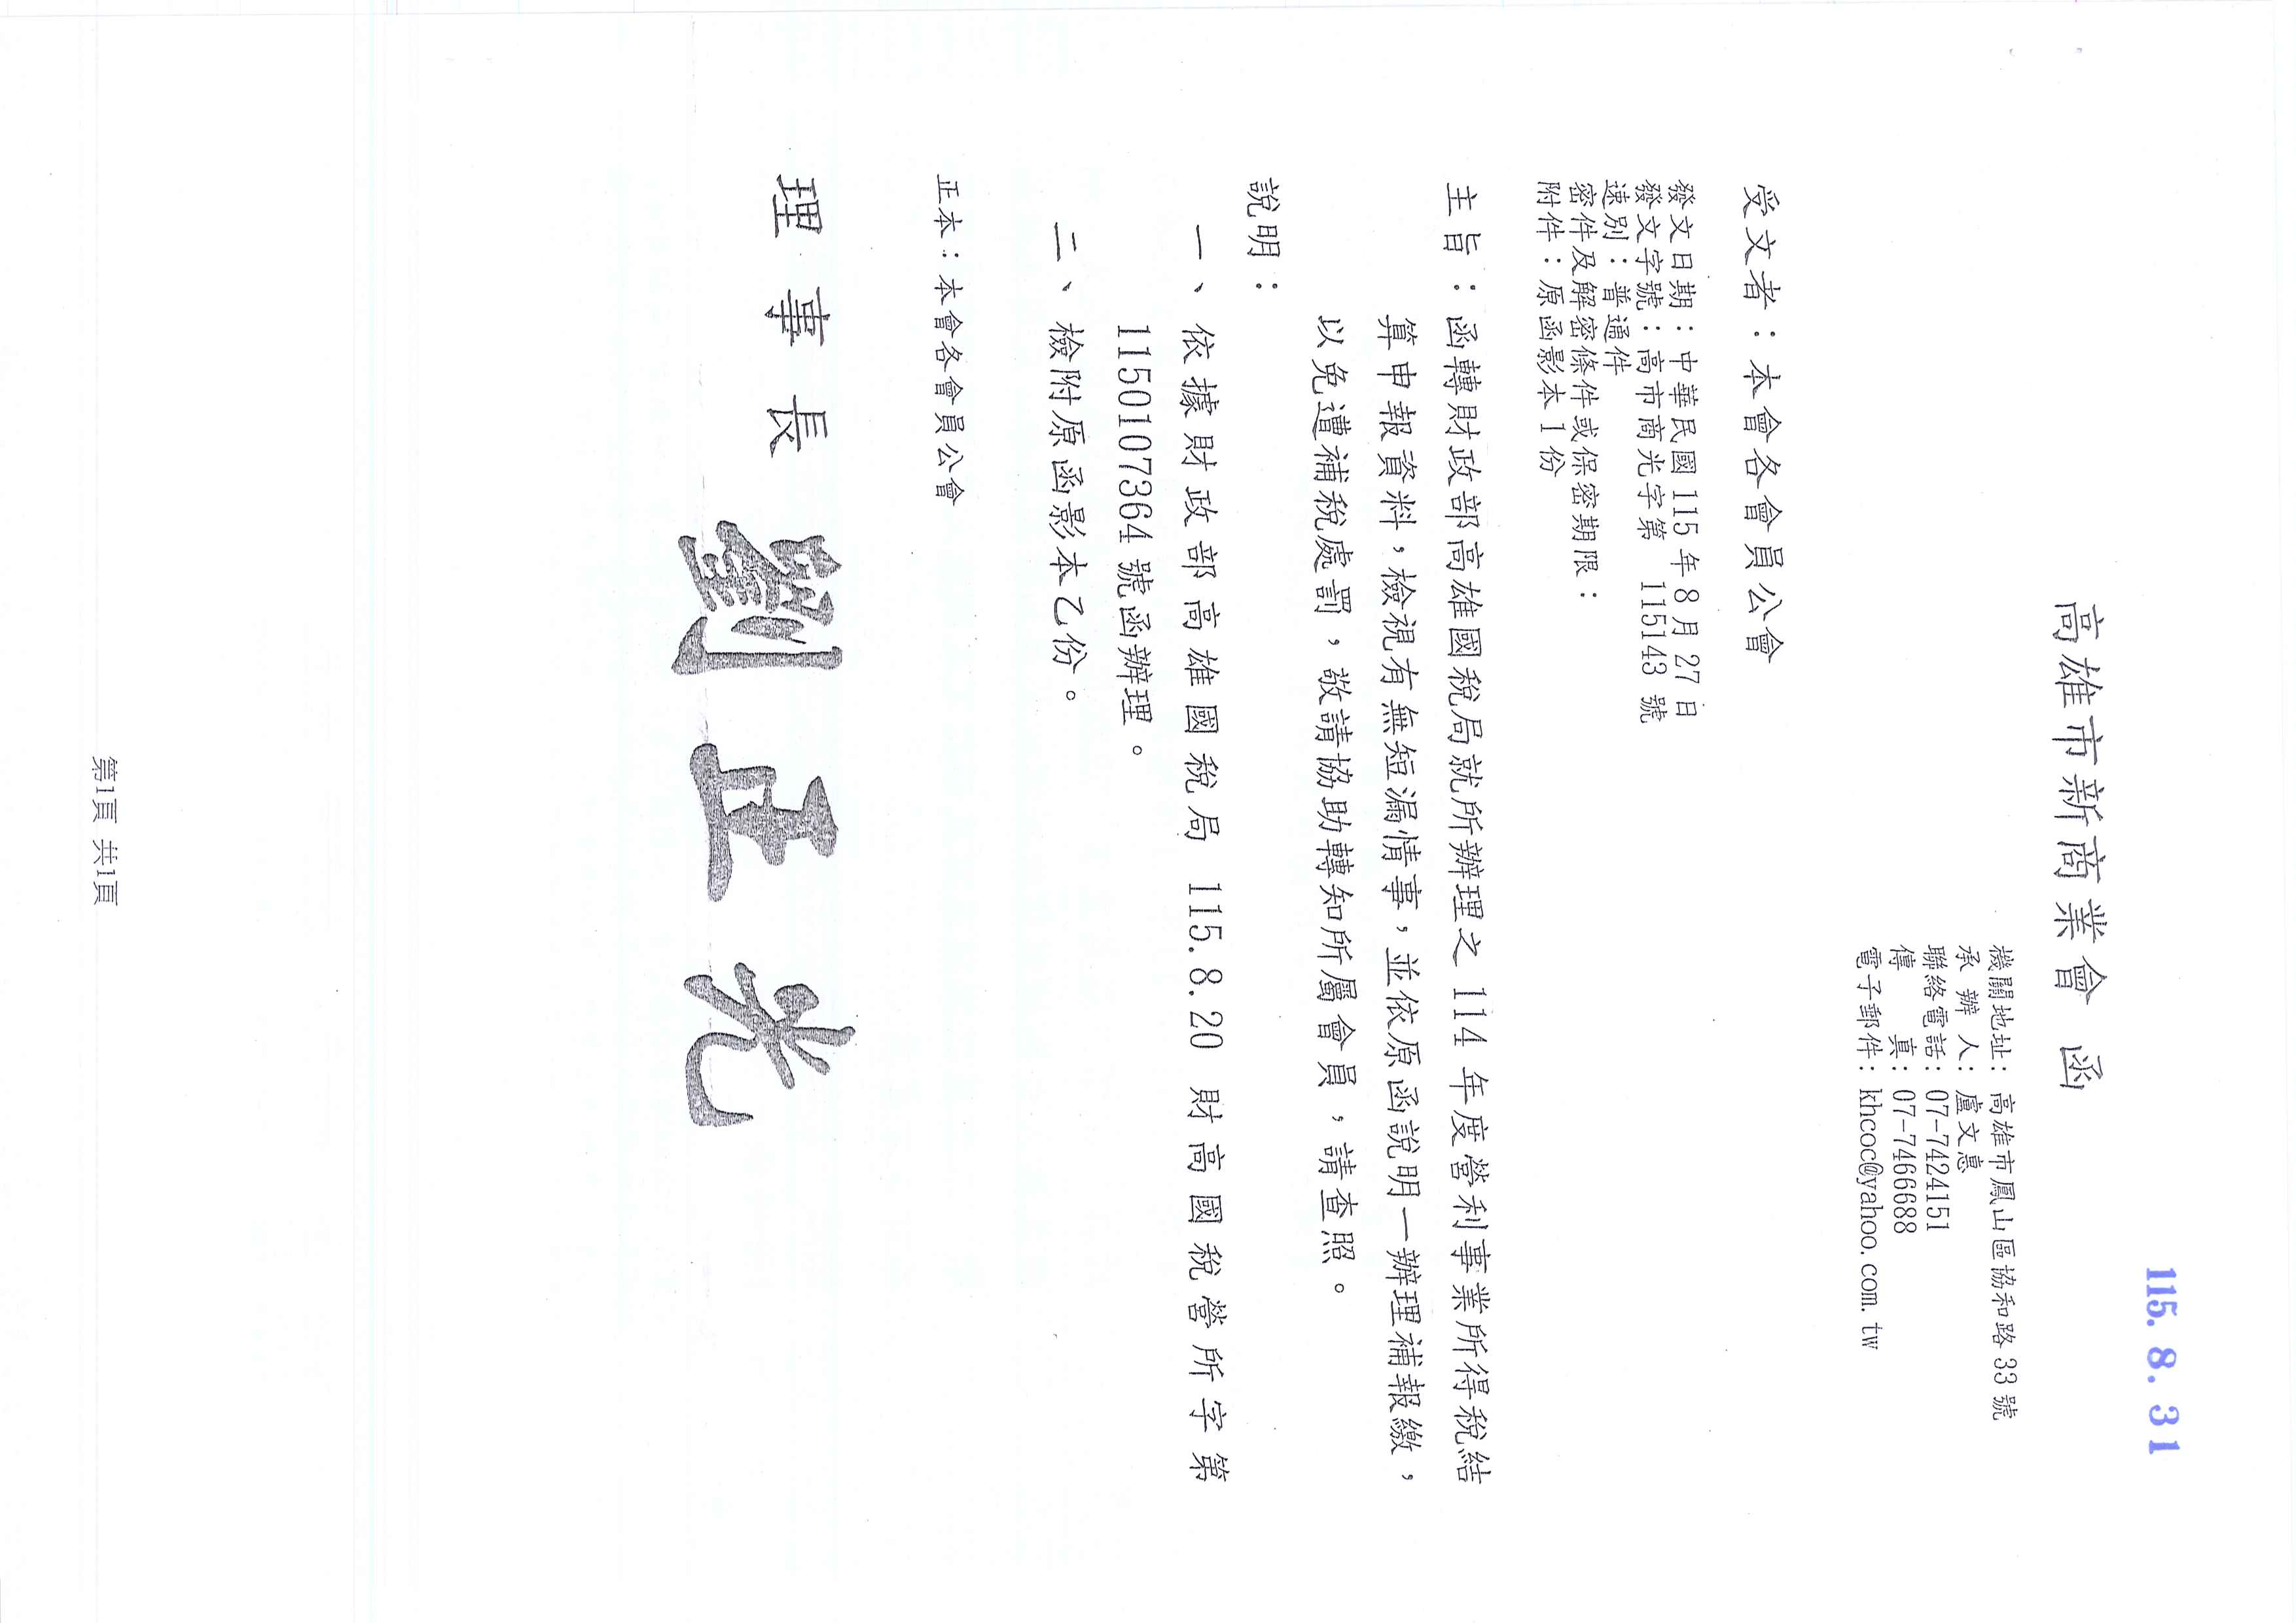 115. 8. 31
高雄市新商業會 函
機關地址：高雄市鳳山區協和路 33 號
承 辦 人：盧文惠
聯絡電話：07-7424151
傳 真：07-7466688
電子郵件：khcoc@yahoo.com.tw
受文者：本會各會員公會
發文日期：中華民國 115 年 8 月 27 日
發文字號：高市商光字第 115143 號
速別：普通件
密件及解密條件或保密期限：
附件：原函影本 1 份
主旨：函轉財政部高雄國稅局就所辦理之 114 年度營利事業所得稅結
算申報資料，檢視有無短漏情事，並依原函說明一辦理補報繳，
以免遭補稅處罰，敬請協助轉知所屬會員，請查照。
說明：
一、依據財政部高雄國稅局 115.8.20 財高國稅營所字第
1150107364 號函辦理。
二、檢附原函影本乙份。
正本：本會各會員公會
理事長 劉正光
第1頁 共1頁